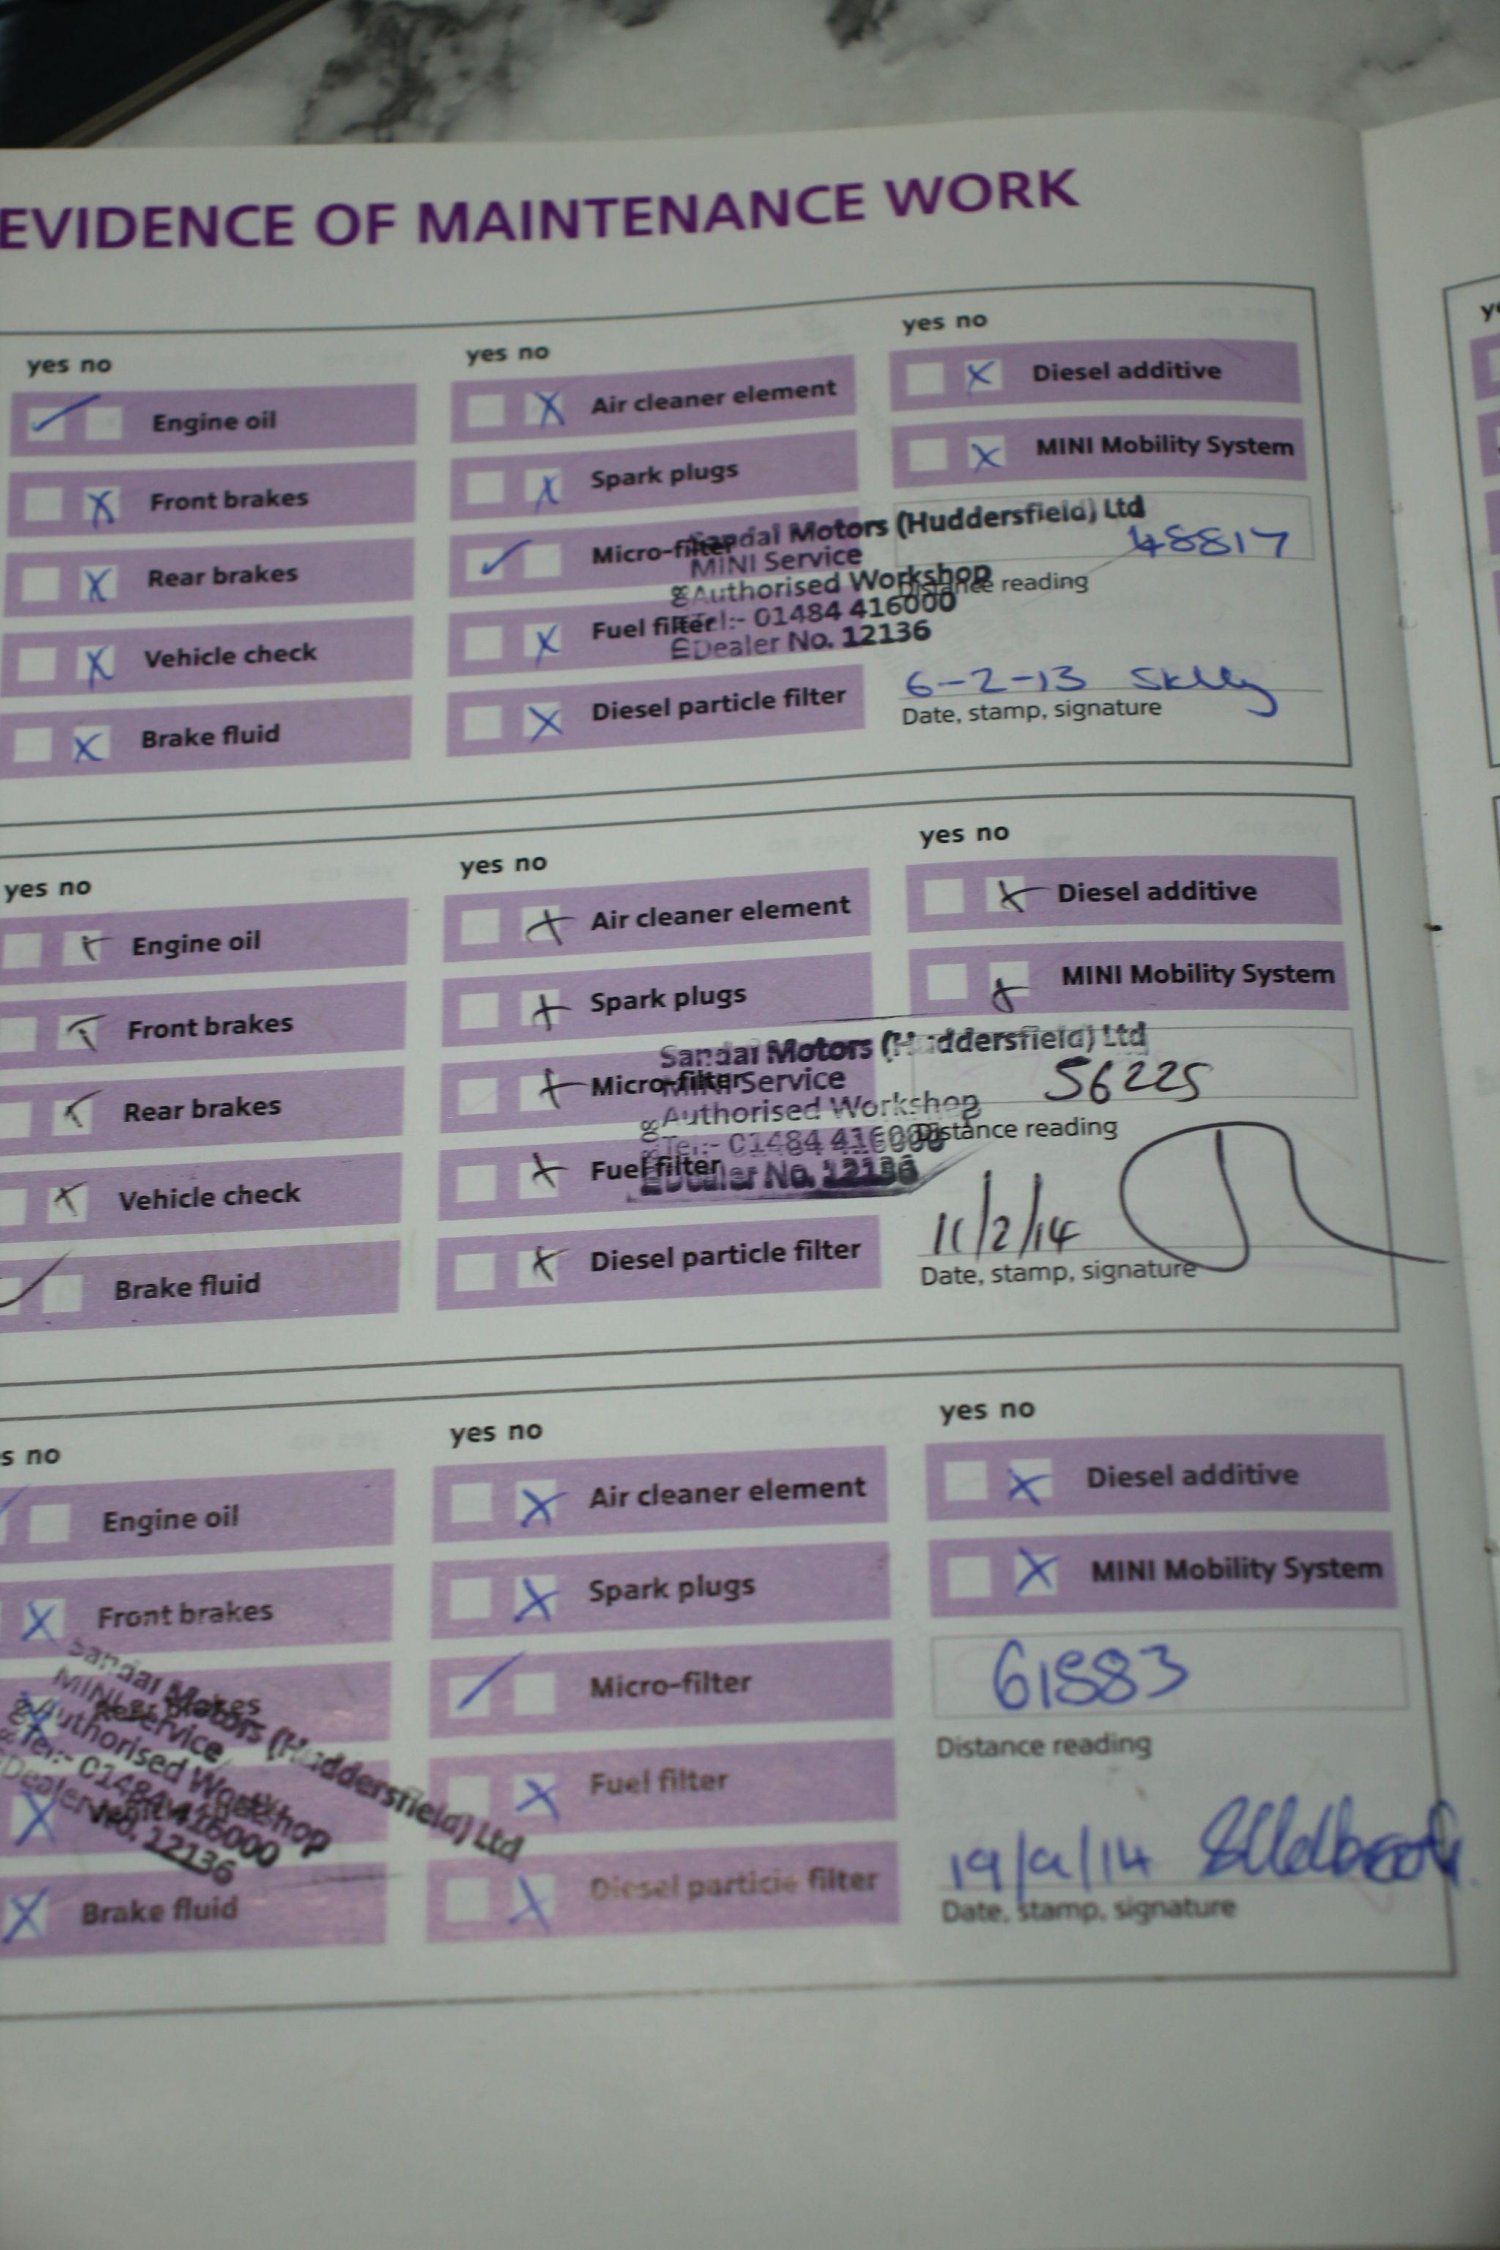 EVIDENCE OF MAINTENANCE WORK
yes no
Engine oil
Front brakes
Rear brakes
Vehicle check
Brake fluid
yes no
Air cleaner element
Spark plugs
Micro-filter
Fuel filter
Diesel particle filter
yes no
Diesel additive
MINI Mobility System
Sandal Motors (Huddersfield) Ltd
MINI Service
Authorised Workshop
Tel:- 01484 416000
Dealer No. 12136
48817
Distance reading
6-2-13 Skelly
Date, stamp, signature
yes no
Engine oil
Front brakes
Rear brakes
Vehicle check
Brake fluid
yes no
Air cleaner element
Spark plugs
Micro-filter
Fuel filter
Diesel particle filter
yes no
Diesel additive
MINI Mobility System
Sandal Motors (Huddersfield) Ltd
MINI Service
Authorised Workshop
Tel:- 01484 416000
Dealer No. 12136
56225
Distance reading
11/2/14
Date, stamp, signature
s no
Engine oil
Front brakes
Rear brakes
Brake fluid
Sandal Motors (Huddersfield) Ltd
MINI Service
Authorised Workshop
Tel:- 01484 416000
Dealer No. 12136
yes no
Air cleaner element
Spark plugs
Micro-filter
Fuel filter
Diesel particle filter
yes no
Diesel additive
MINI Mobility System
61883
Distance reading
19/9/14
Date, stamp, signature